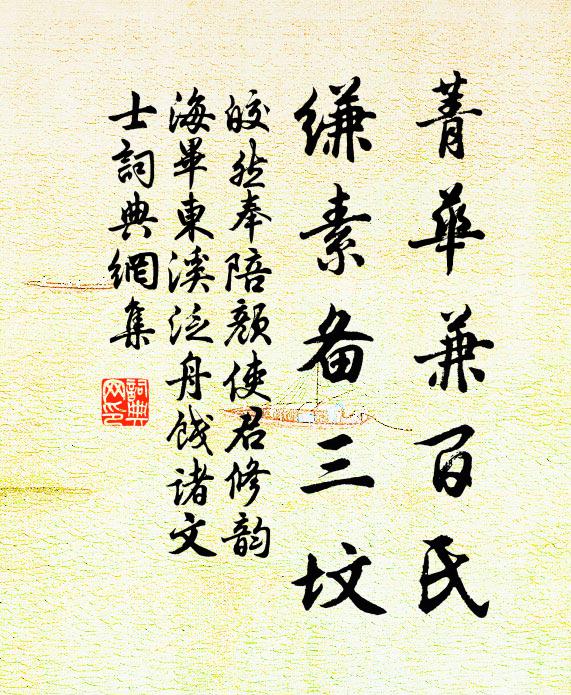 菁華兼百氏
缣素备三坟
皎然奉陪颜使君修韵
海畢東溪泛舟餞诸文
士詞典網集
詞典网印